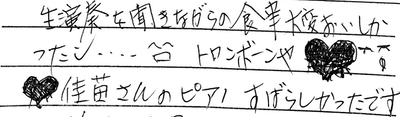 生演奏を聞きながらの食事大変おいしか
ったし‥‥ トロンボーンや
佳苗さんのピアノ すばらしかったです